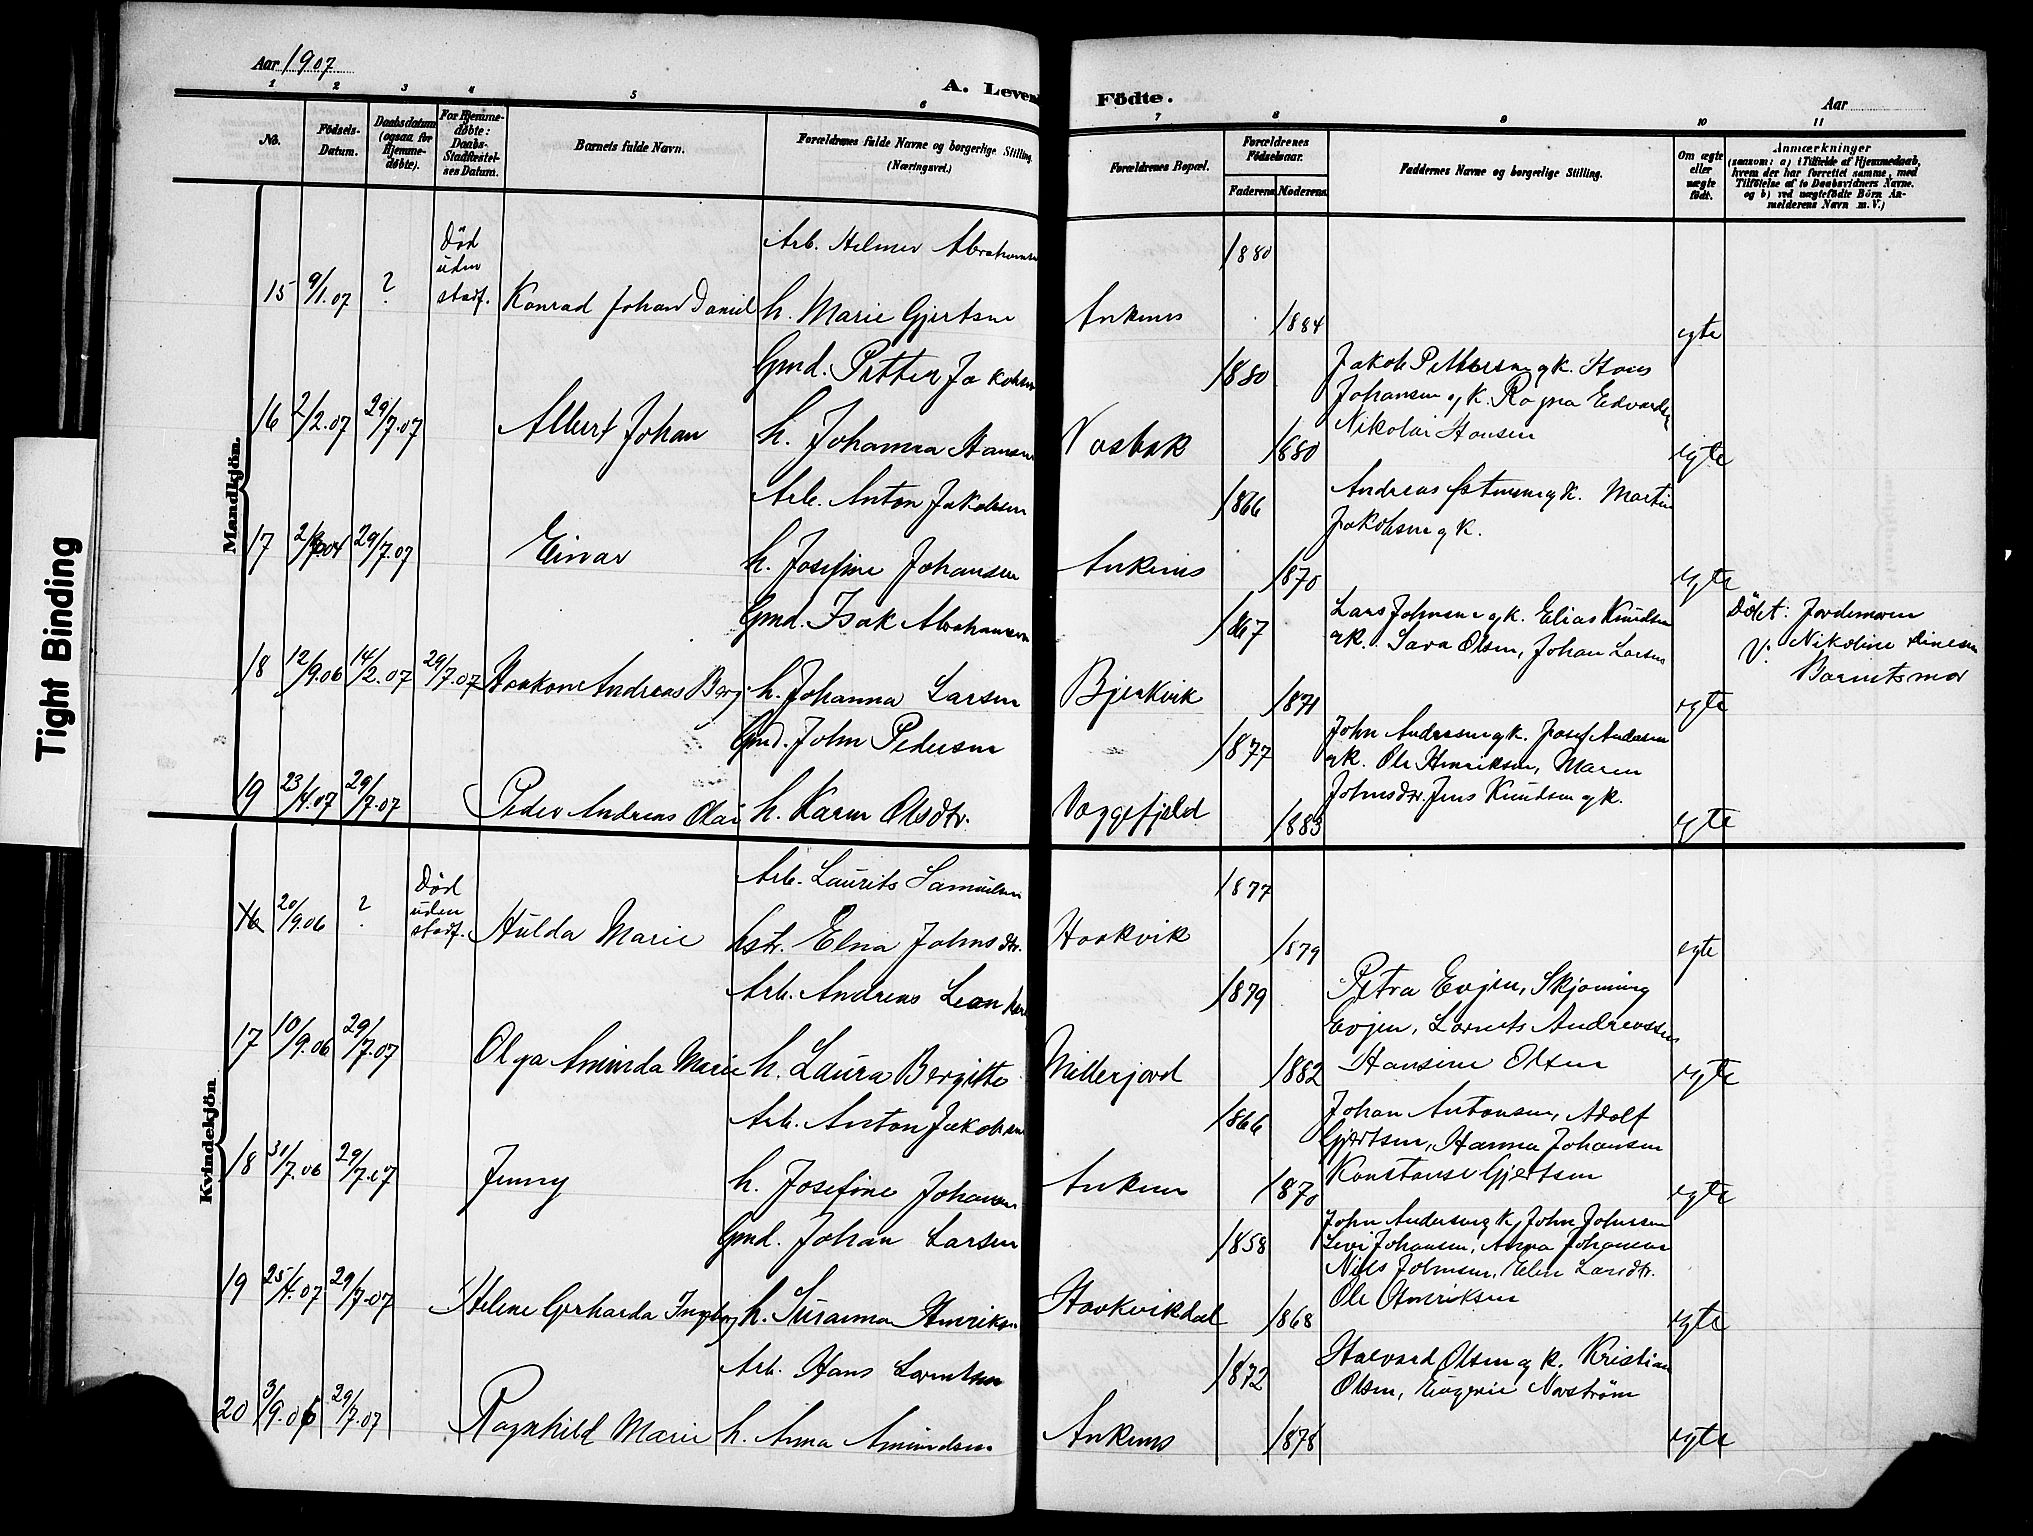 Aar 1907
A. Levende Födte.
Aar
1 2 3 4 5 6 7 8 9 10 11
No.
Födsels-Datum.
Daabsdatum (ogsaa for Hjemmedøbte).
For Hjemmedøbte: Daabs-Stadfæstelses Datum.
Barnets fulde Navn.
Forældrenes fulde Navne og borgerlige Stilling. (Næringsvei.)
Forældrenes Bopæl.
Forældrenes Födselsaar.
Faderens. Moderens.
Faddernes Navne og borgerlige Stilling.
Om ægte eller uægte födt.
Anmærkninger
(saasom: a) i Tilfælde af Hjemmedaab, hvem der har forrettet samme, med Tilföielse af to Daabsvidners Navne. og b) ved uægtefödte Börn Anmelderens Navn m. V.)
Mandkjön.
Død uden stadf.
Arb. Helmer Abrahamsen
1880
15 9/1.07 ? Konrad Johan Daniel h. Marie Gjertsen Ankenes 1884 egte
Gmd. Petter Jakobsen 1880 Jakob Pettersen g k. Hans
Johansen g k. Ragna Edvardsen
16 2/2.07 29/7.07 Albert Johan h. Johanna Hansen Vasbak 1880 Nikolai Hansen egte
Arb. Anton Jakobsen 1866 Andreas Estensen g k. Martin
Jakobsen g k.
17 29/7.07 Einar h. Josefine Johansen Ankenes 1870 egte
Gmd. Isak Abrahamsen 1867 Lars Johnsen g k. Elias Knudsen Döbt: Jordemoren
g k. Sara Olsen, Johan Larsen V: Nikoline
18 12/9.06 14/2.07 29/7.07 Haakon Andreas Berg h. Johanna Larsen Bjerkvik 1871 egte Barnets mor
Gmd. John Pedersen 1877 John Andersen g k. Josef Andersen
g k. Ole Henriksen, Maren
19 23/4.07 29/7.07 Peder Andreas Olai h. Karen Olsdtr. Vaggefjeld 1883 Johnsdtr. Jens Knudsen g k. egte
Kvindekjön
Død uden stadf.
Arb. Laurits Samuelsen 1877
16 20/9.06 ? Hulda Marie hstr. Elna Johnsdtr. Haakvik 1879 egte
Arb. Andreas 1879 Petra Evjen, Skjoming
Evjen, Lornts Andreassen
17 10/9.06 29/7.07 Olga Aminda Marie h. Laura Bergitte Millerjord 1882 Hansine Olsen egte
Arb. Anton Jakobsen 1866 Johan Antonsen, Adolf
Gjertsen, Hanna Johansen
18 31/7.06 29/7.07 Jenny h. Josefine Johansen Ankenes 1870 Konstanse Gjertsen egte
Gmd. Johan Larsen 1858 John Andersen g k, John Johnsen
Levi Johansen, Anna Johansen
Nils Johnsen, Elen Larsdtr.
19 25/4.07 29/7.07 Helene Gerharda Ingeborg h. Susanna Henriksen Haakvikdal 1868 Ole Henriksen egte
Arb. Hans Lorentsen 1872 Halvard Olsen g k. Kristian
Olsen, Eugenie Norström
20 3/9.06 29/7.07 Ragnhild Marie h. Anna Amundsen Ankenes 1878 egte
Tight Binding